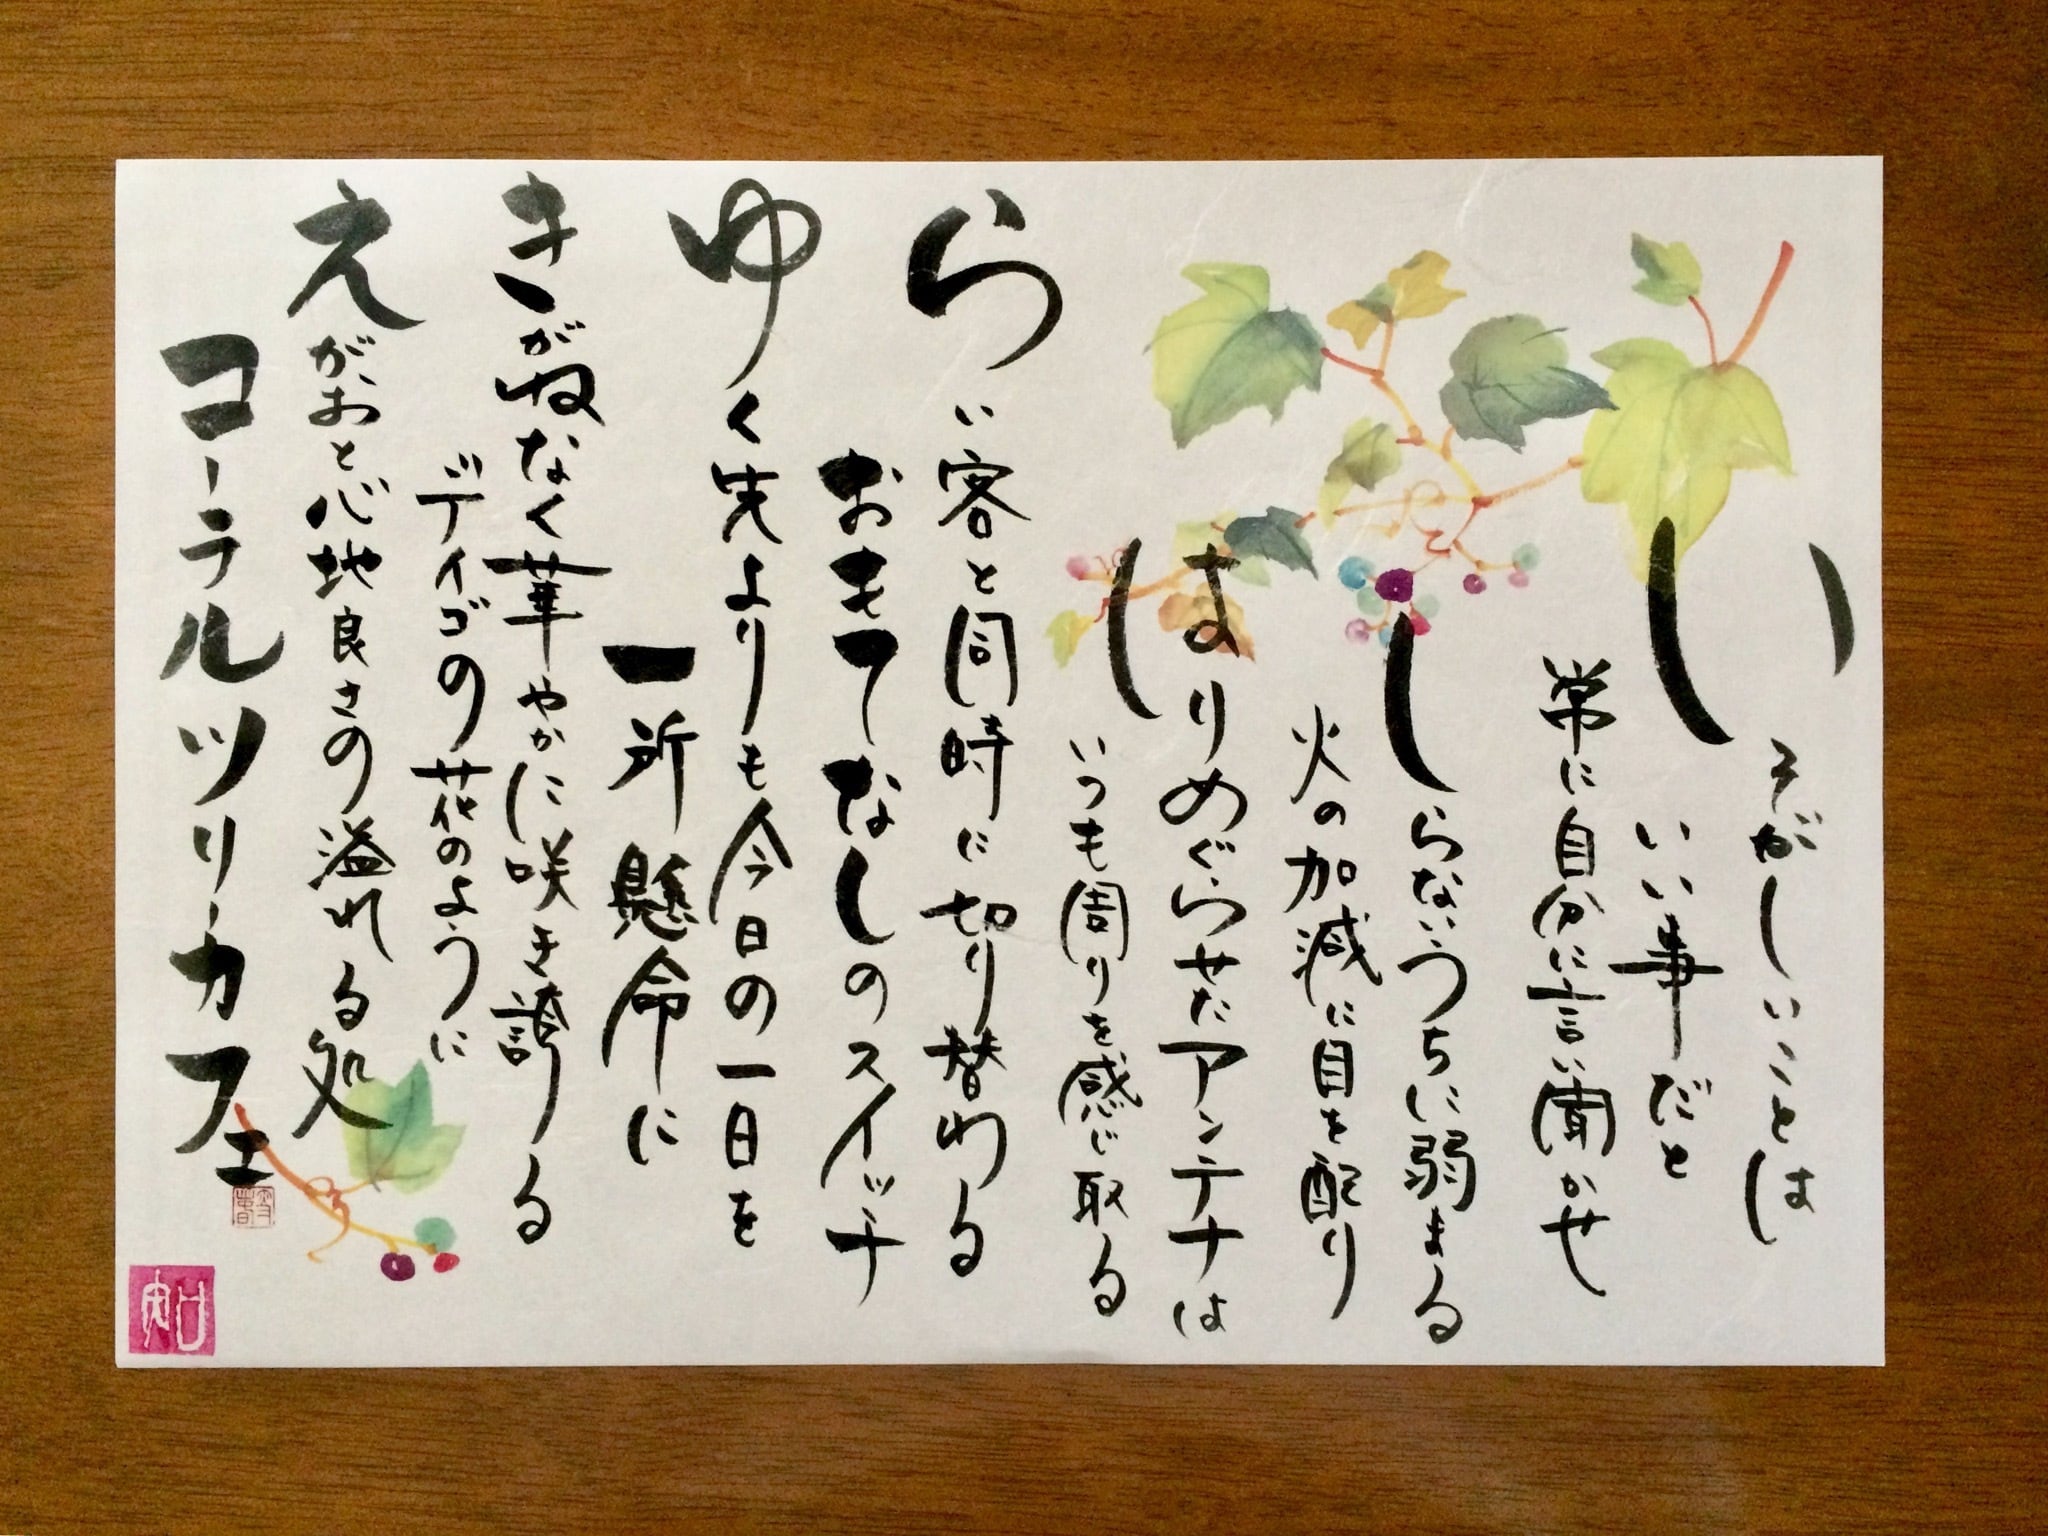 いそがしいことは
いい事だと
常に自分に言い聞かせ
しらないうちに弱まる
火の加減に目を配り
はりめぐらせたアンテナは
いつも周りを感じ取る
らい客と同時に切り替わる
おもてなしのスイッチ
ゆく先よりも今日の一日を
一所懸命に
きがねなく華やかに咲き誇る
デイゴの花のように
えがおと心地良さの溢れる処
コーラルツリーカフェ
知